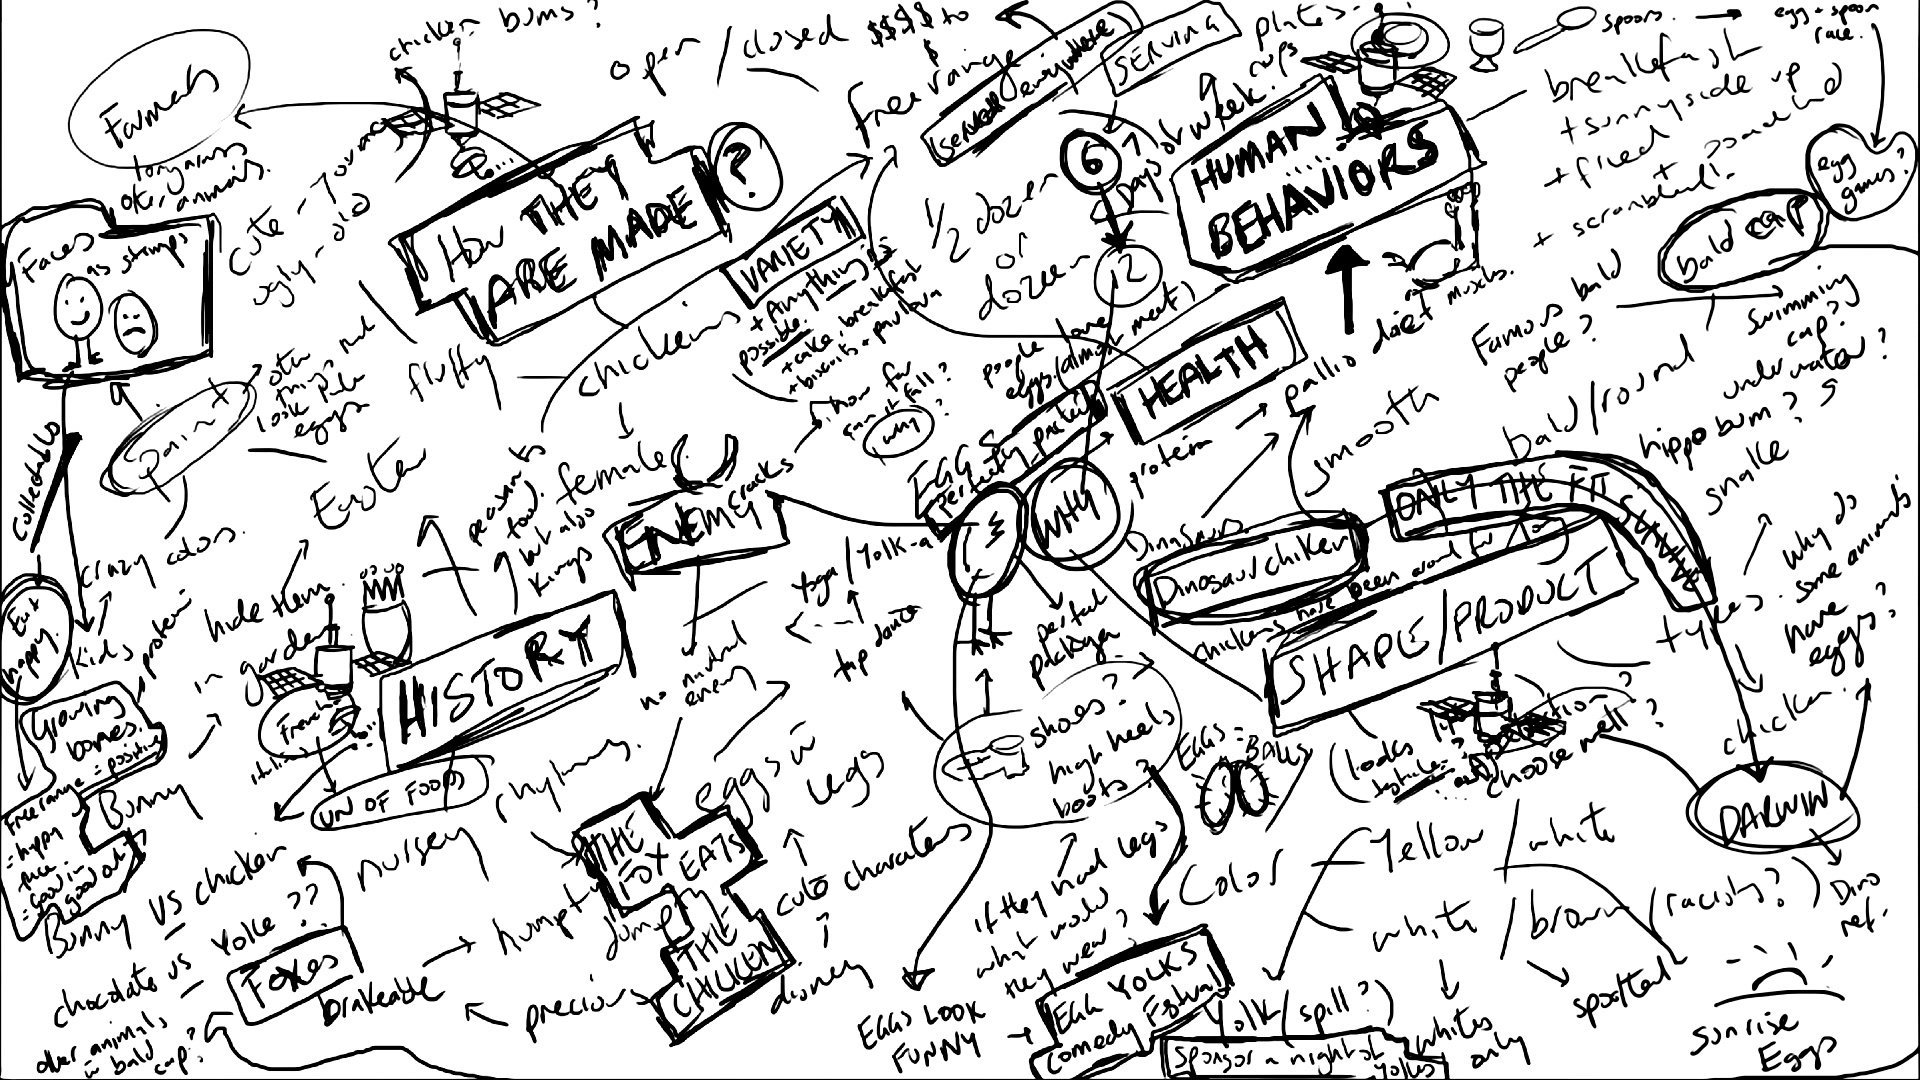 chicken bums?
open / closed
$$$$ to
$
free range
SERVING
plates.
cups
spoons.
egg + spoon
race.
Farmers
other animals.
cute - young
ugly - old
HOW THEY
ARE MADE
?
VARIETY
+ Anything is
possible.
+ cake breakfast
+ biscuits + pavlova
1/2 dozen
or
dozen
6
12
7
days
of week.
HUMAN
BEHAVIORS
breakfast
+ sunny side up
+ fried
+ poached
+ scrambled!
egg
games?
bald cap
swimming
cap?
under water?
Faces
as stamps
collectable
paint
other
things not
look like
eggs
fluffy
chickens
how far
can it fall?
why?
people love
eggs (almost meat)
HEALTH
protein
pallio diet
muscles.
Famous bald
people?
smooth
bald/round
hippo bum?
snake
Easter
peasants
food.
but also
kings
female.
ENEMY
cracks
EGG
perfectly
WHY
Dinosaurs
Dinosaur/chicken
ONLY THE FIT
SURVIVE
chickens have been around for
SHAPE/PRODUCT
types.
why do
some animals
have
eggs?
crazy colors.
Eat
happy.
kids
protein
Growing
bones.
Free range = positive
= happy
= good in
= good out
hide them
in garden
Bunny
French
HISTORY
UN OF FOODS
nursery rhymes.
no natural
enemy
yoga / yolk-a
tap dance
perfect
package
shoes?
high heels
boots?
EGGS = BALLS
(looks
choose well?
chicken.
DARWIN
Dino
ref.
Bunny VS chicken
chocolate vs Yolke??
other animals
in bald
cap?
Foxes
brakeable
humpty
dumpty
precious
THE
FOX
EATS
THE
CHICKEN
eggs in
legs
cute characters
disney
EGGS LOOK
FUNNY
if they had legs
what would
they wear?
EGG YOLKS
Comedy Festival
Sponsor a night of
Yolks
Color
Yellow / white
white / brown (racisty?)
Yolk (spill?)
whites
only
spotted
Sunrise
Eggs